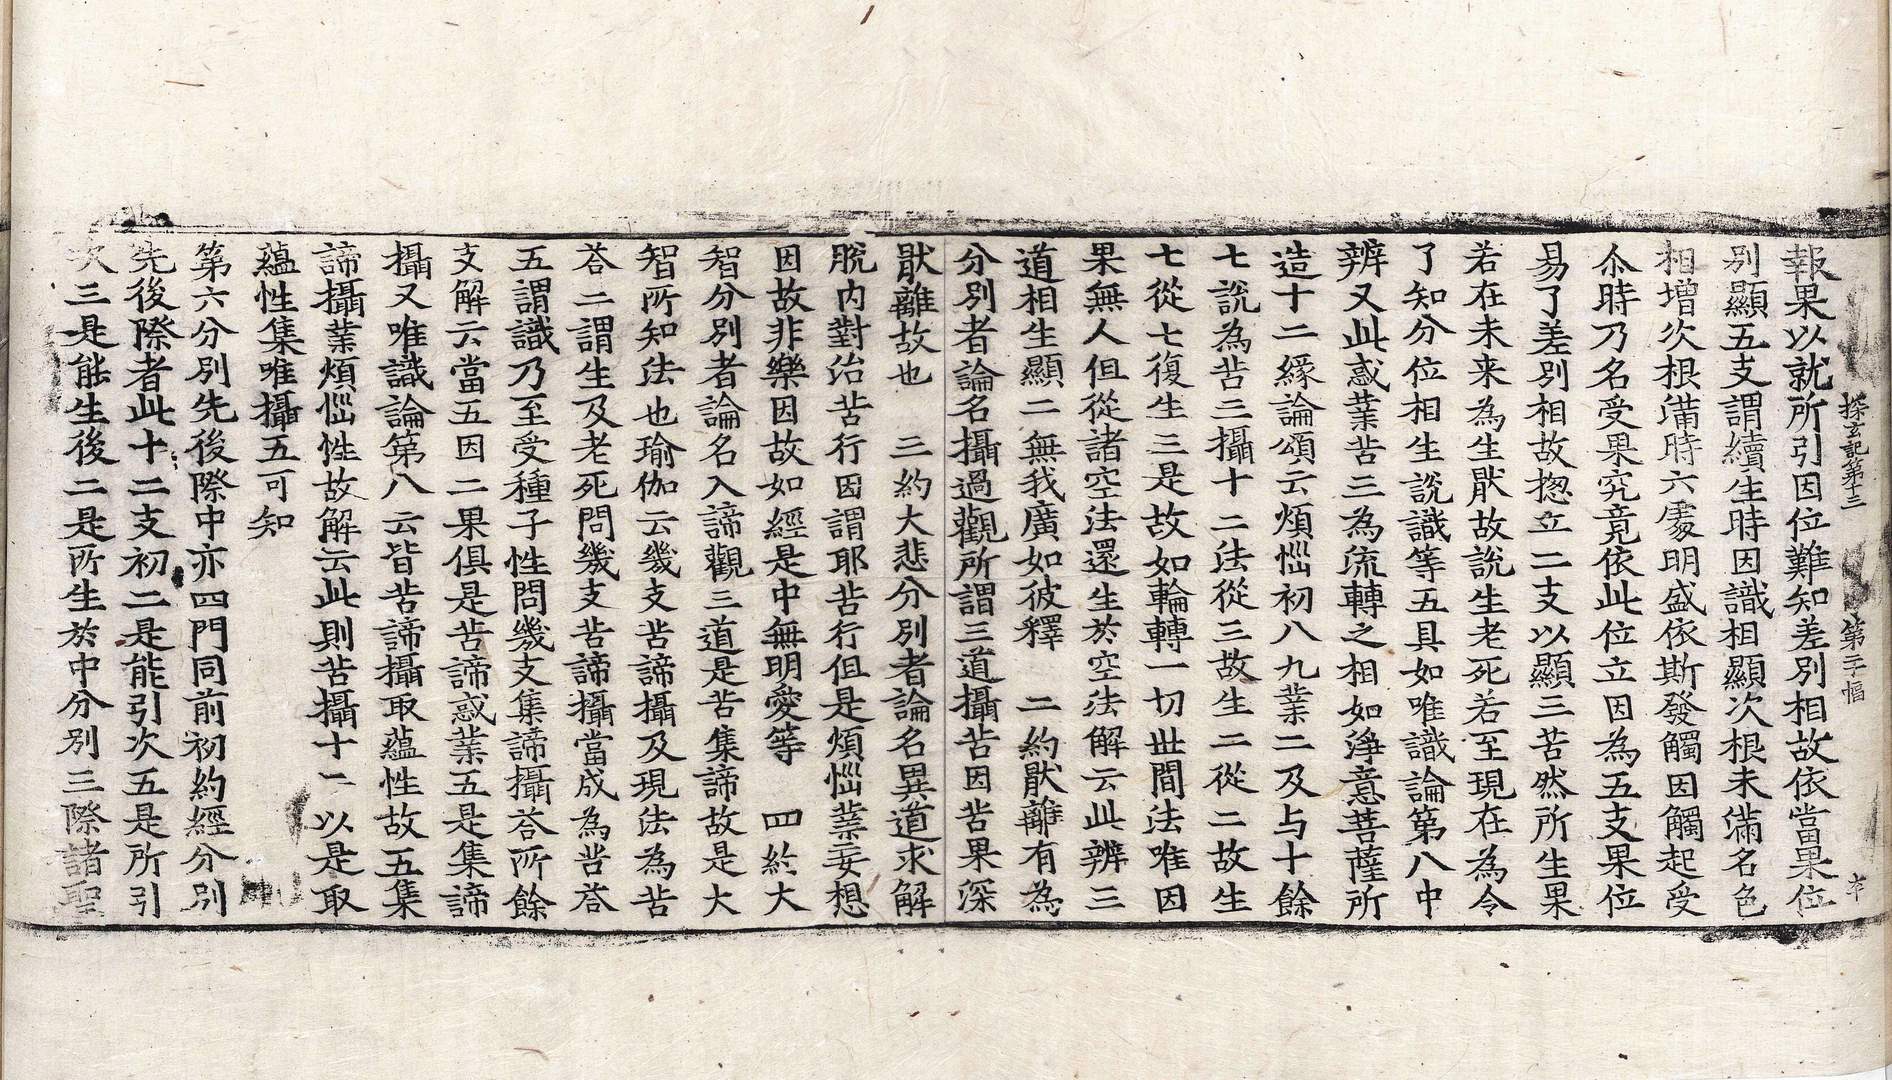 探玄記第十三 第二十幅 卞
報果以就所引因位難知差別相故依當果位
別顯五支謂續生時因識相顯次根未滿名色
相增次根滿時六處明盛依斯發觸因觸起受
尒時乃名受果究竟依此位立因為五支果位
易了差別相故揔立二支以顯三苦然所生果
若在未来為生猒故說生老死若至現在為令
了知分位相生說識等五具如唯識論第八中
辨又此惑業苦三為流轉之相如淨意菩薩所
造十二緣論頌云煩惱初八九業二及与十餘
七說為苦三攝十二法從三故生二從二故生
七從七復生三是故如輪轉一切世間法唯因
果無人但從諸空法還生於空法解云此辨三
道相生顯二無我廣如彼釋 二約猒離有為
分別者論名攝過觀所謂三道攝苦因苦果深
猒離故也 三約大悲分別者論名異道求解
脫內對治苦行因謂耶苦行但是煩惱業妄想
因故非樂因故如經是中無明愛等 四約大
智分別者論名入諦觀三道是苦集諦故是大
智所知法也瑜伽云幾支苦諦攝及現法為苦
荅二謂生及老死問幾支苦諦攝當成為苦荅
五謂識乃至受種子性問幾支集諦攝荅所餘
支解云當五因二果俱是苦諦惑業五是集諦
攝又唯識論第八云皆苦諦攝取蘊性故五集
諦攝業煩惱性故解云此則苦攝十二以是取
蘊性集唯攝五可知
第六分別先後際中亦四門同前初約經分別
先後際者此十二支初二是能引次五是所引
次三是能生後二是所生於中分別三際諸聖